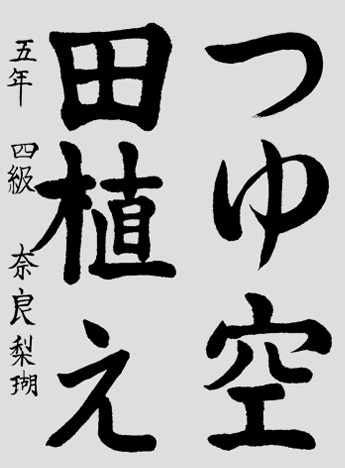 つゆ空
田植え
五年 四級 奈良梨瑚